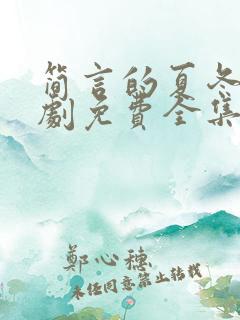 简言的夏冬
劇免費全集
鄭心穗
未经同意禁止转载